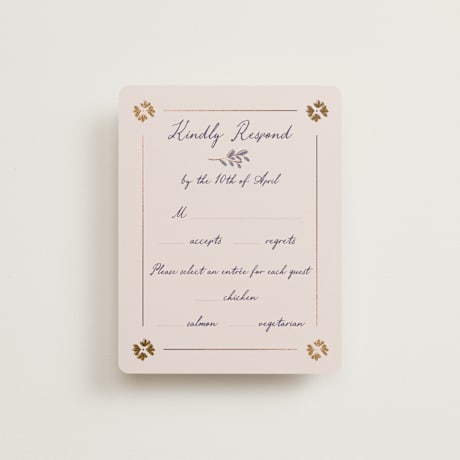 Kindly Respond
by the 10th of April
M
accepts regrets
Please select an entrée for each guest
chicken
salmon vegetarian